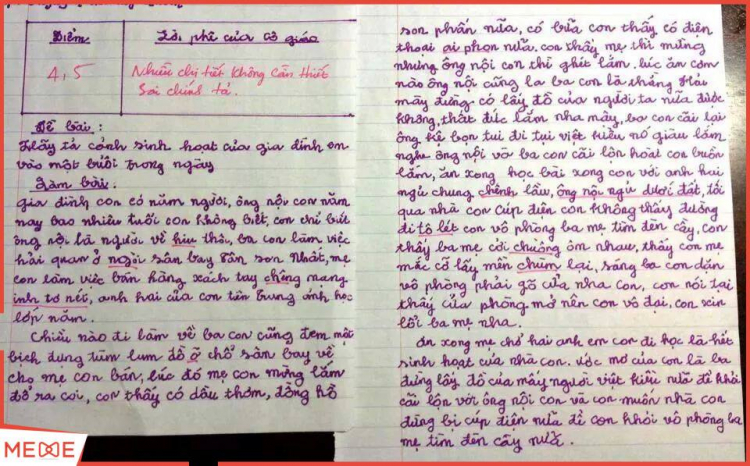 Điểm
Lời phê của cô giáo
4,5
Nhiều chi tiết không cần thiết
Sai chính tả.
Đề bài :
Hãy tả cảnh sinh hoạt của gia đình em
vào một buổi trong ngày
Làm bài :
gia đình con có năm người, ông nội con năm
nay bao nhiêu tuổi con không biết, con chỉ biết
ông nội là người về hiu thôi, ba con làm việc
hải quan ở ngoài sân bay Tân Sơn Nhất, mẹ
con làm việc bán hàng xách tay chêng mạng
inh tơ nét, anh hai của con tên Trung ảnh học
lớp năm.
Chiều nào đi làm về ba con cũng đem một
bịch đựng tùm lum đồ ở chỗ sân bay về
cho mẹ con bán, lúc đó mẹ con mừng lắm
đổ ra coi, con thấy có dầu thơm, đồng hồ
son phấn nữa, có bữa con thấy có điện
thoại ai phon nữa. con thấy mẹ thì mừng
nhưng ông nội con thì ghét lắm. lúc ăn cơm
nào ông nội cũng la ba con là thằng Hải
mày đừng có lấy đồ của người ta nữa được
không, thất đức lắm nha mậy, ba con cãi lại
ông kệ bọn tui đi tụi việt kiều nó giàu lắm
nghe ông nội và ba con cãi lộn hoài con buồn
lắm, ăn xong học bài xong con với anh hai
ngủ chung chênh lầu, ông nội ngủ dưới đất, tối
qua nhà con cúp điện con không thấy đường
đi tô lét con vô phòng ba mẹ tìm đèn cầy, con
thấy ba mẹ cởi chuồng ôm nhau, thấy con mẹ
mắc cỡ lấy mền chùm lại, sáng ba con dặn
vô phòng phải gõ cửa nha con, con nói tại
thấy cửa phòng mở nên con vô đại, con xin
lỗi ba mẹ nha.
Ăn xong mẹ chở hai anh em con đi học là hết
sinh hoạt của nhà con. ước mơ của con là ba
đừng lấy đồ của mấy người việt kiều nữa để khỏi
cãi lộn với ông nội con và con muốn nhà con
đừng bị cúp điện nữa để con khỏi vô phòng ba
mẹ tìm đèn cầy nữa.
MEME